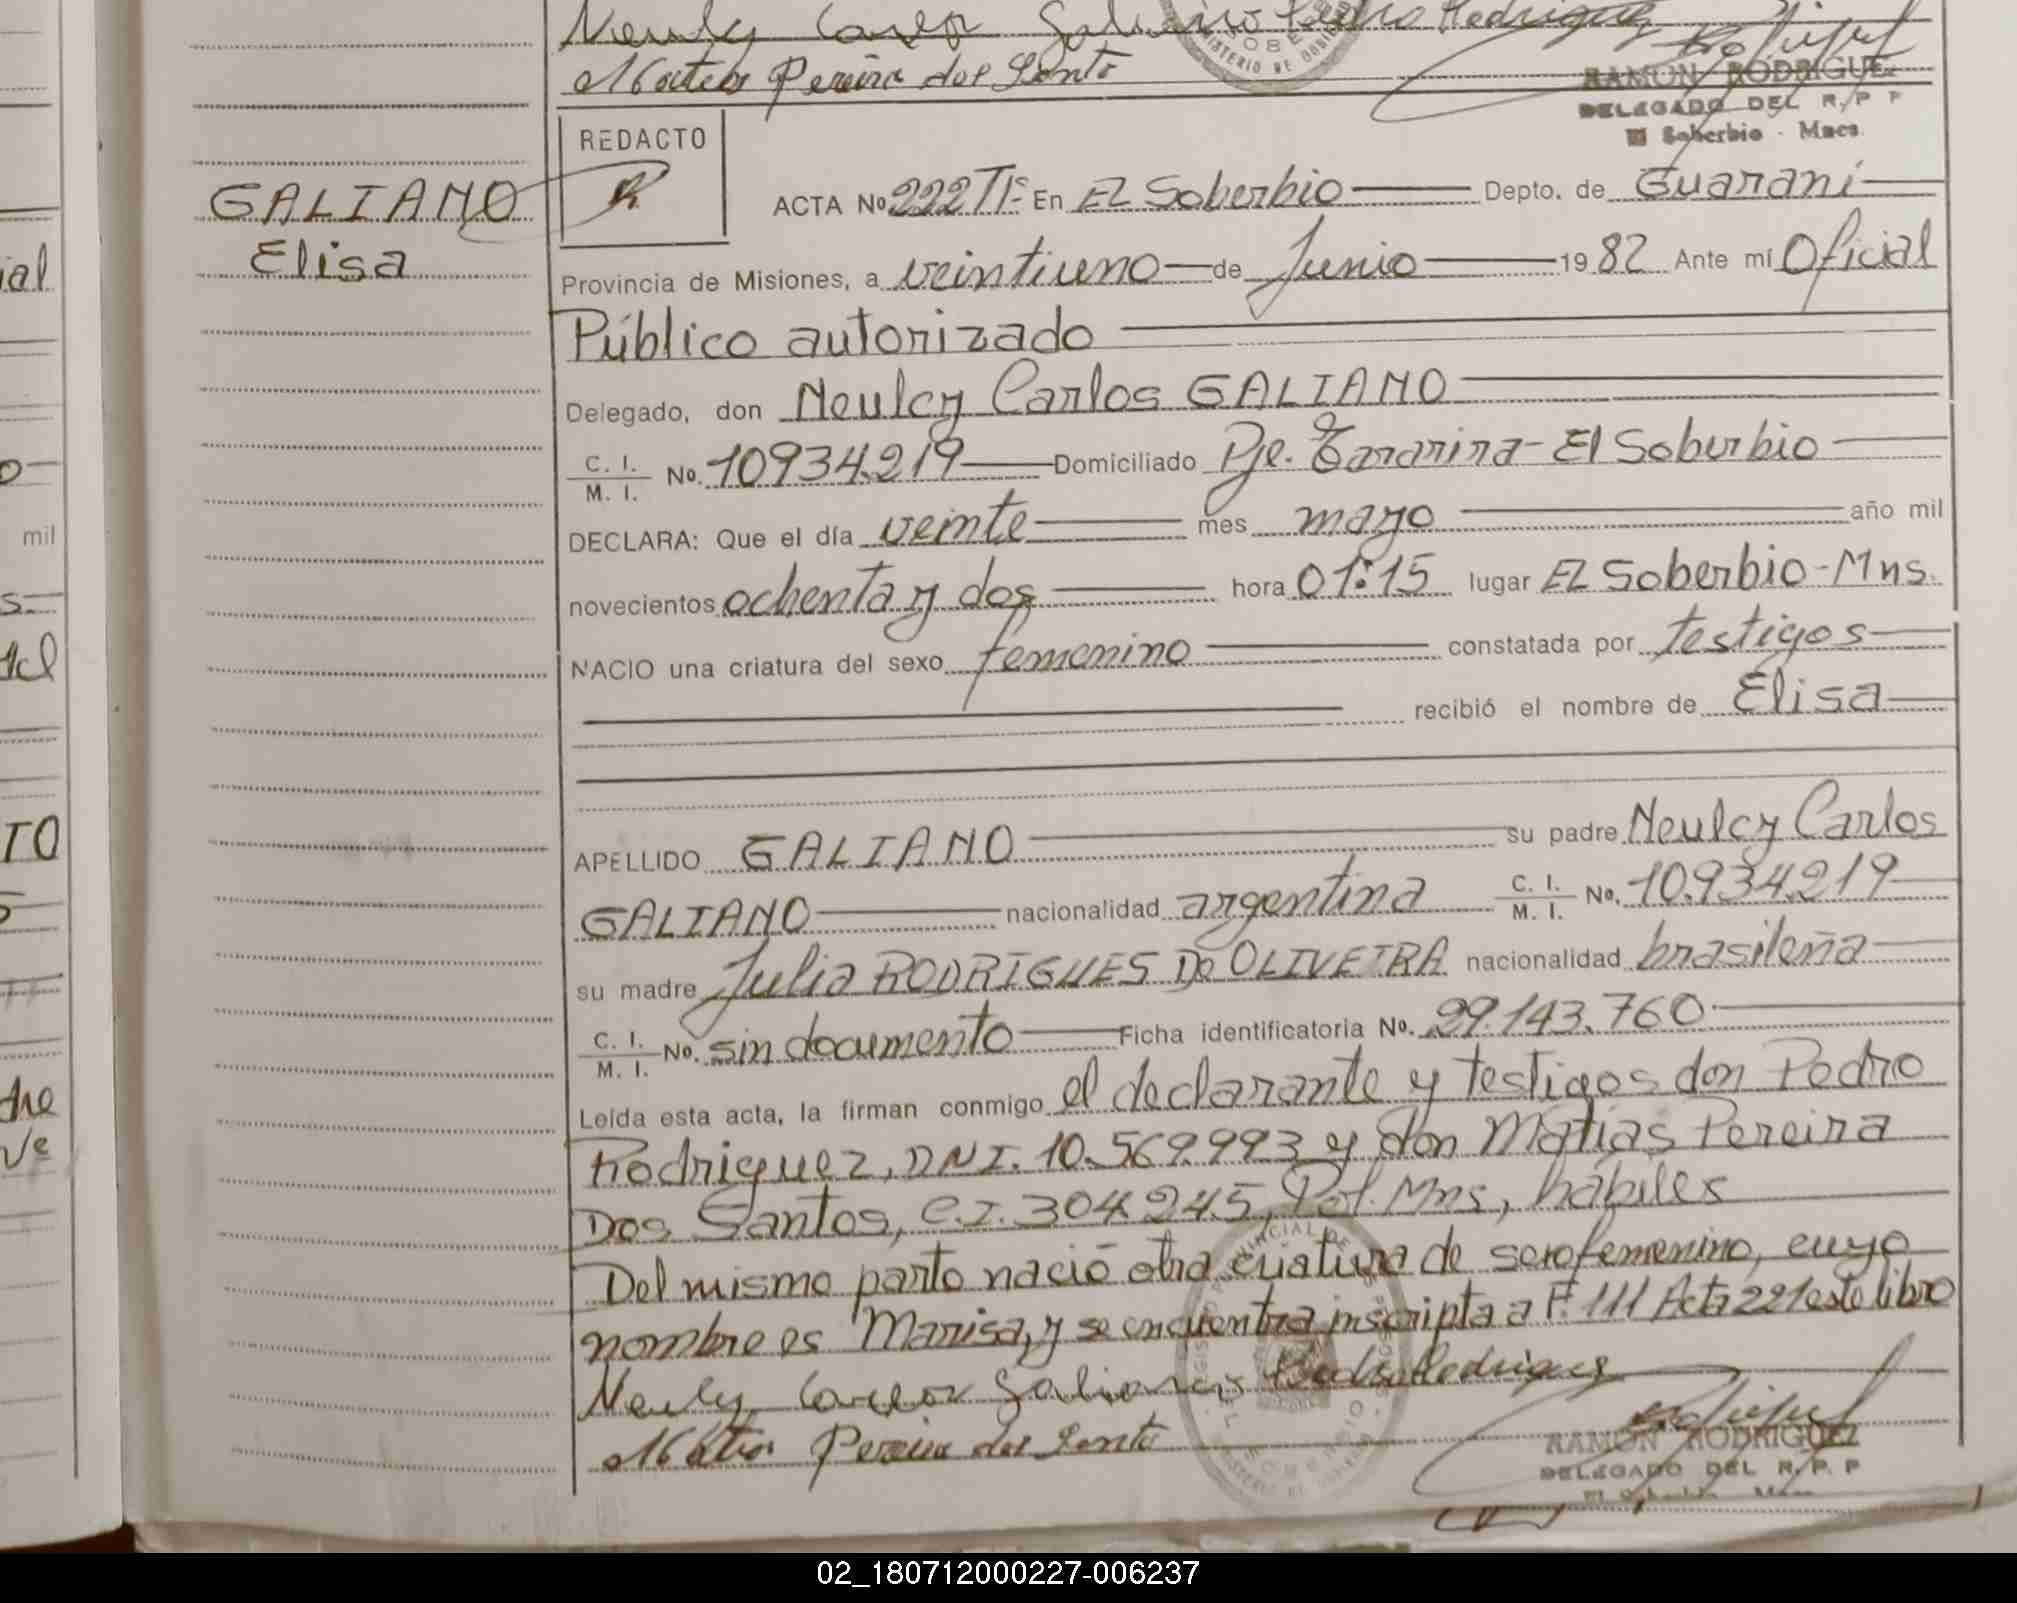 Neuly Carlos Galiano Pedro Rodriguez
Matias Pereira dos Santo
RAMON RODRIGUEZ
DELEGADO DEL R. P P
El Soberbio - Mnes
GALIANO
Elisa
REDACTO
ACTA No 222 TI- En El Soberbio Depto. de Guaraní
Provincia de Misiones, a veintiuno de Junio 19 82 Ante mí Oficial
Público autorizado
Delegado, don Neulcy Carlos GALIANO
C. I.
M. I. No. 10934.219 Domiciliado Pje. Tararira - El Soberbio
DECLARA: Que el día veinte mes mayo año mil
novecientos ochenta y dos hora 01:15 lugar El Soberbio - Mns.
NACIO una criatura del sexo femenino constatada por testigos
recibió el nombre de Elisa
APELLIDO GALIANO su padre Neulcy Carlos
GALIANO nacionalidad argentina C. I. M. I. No. 10.934.219
su madre Julia RODRIGUES DO OLIVEIRA nacionalidad brasileña
C. I. M. I. No. sin documento Ficha identificatoria No. 99.143.760
Leída esta acta, la firman conmigo el declarante y testigos don Pedro
Rodriguez, DNI. 10.569.993 y don Matias Pereira
Dos Santos, C.I. 304.245, Pol. Mns, hábiles
Del mismo parto nació otra criatura de sexo femenino, cuyo
nombre es Marisa, y se encuentra inscripta a Fº 111 Acta 221 este libro
Neuly Carlos Galiano Pedro Rodriguez
Matias Pereira dos Santo
RAMON RODRIGUEZ
DELEGADO DEL R. P. P
ial
mil
TO
dre
02_180712000227-006237